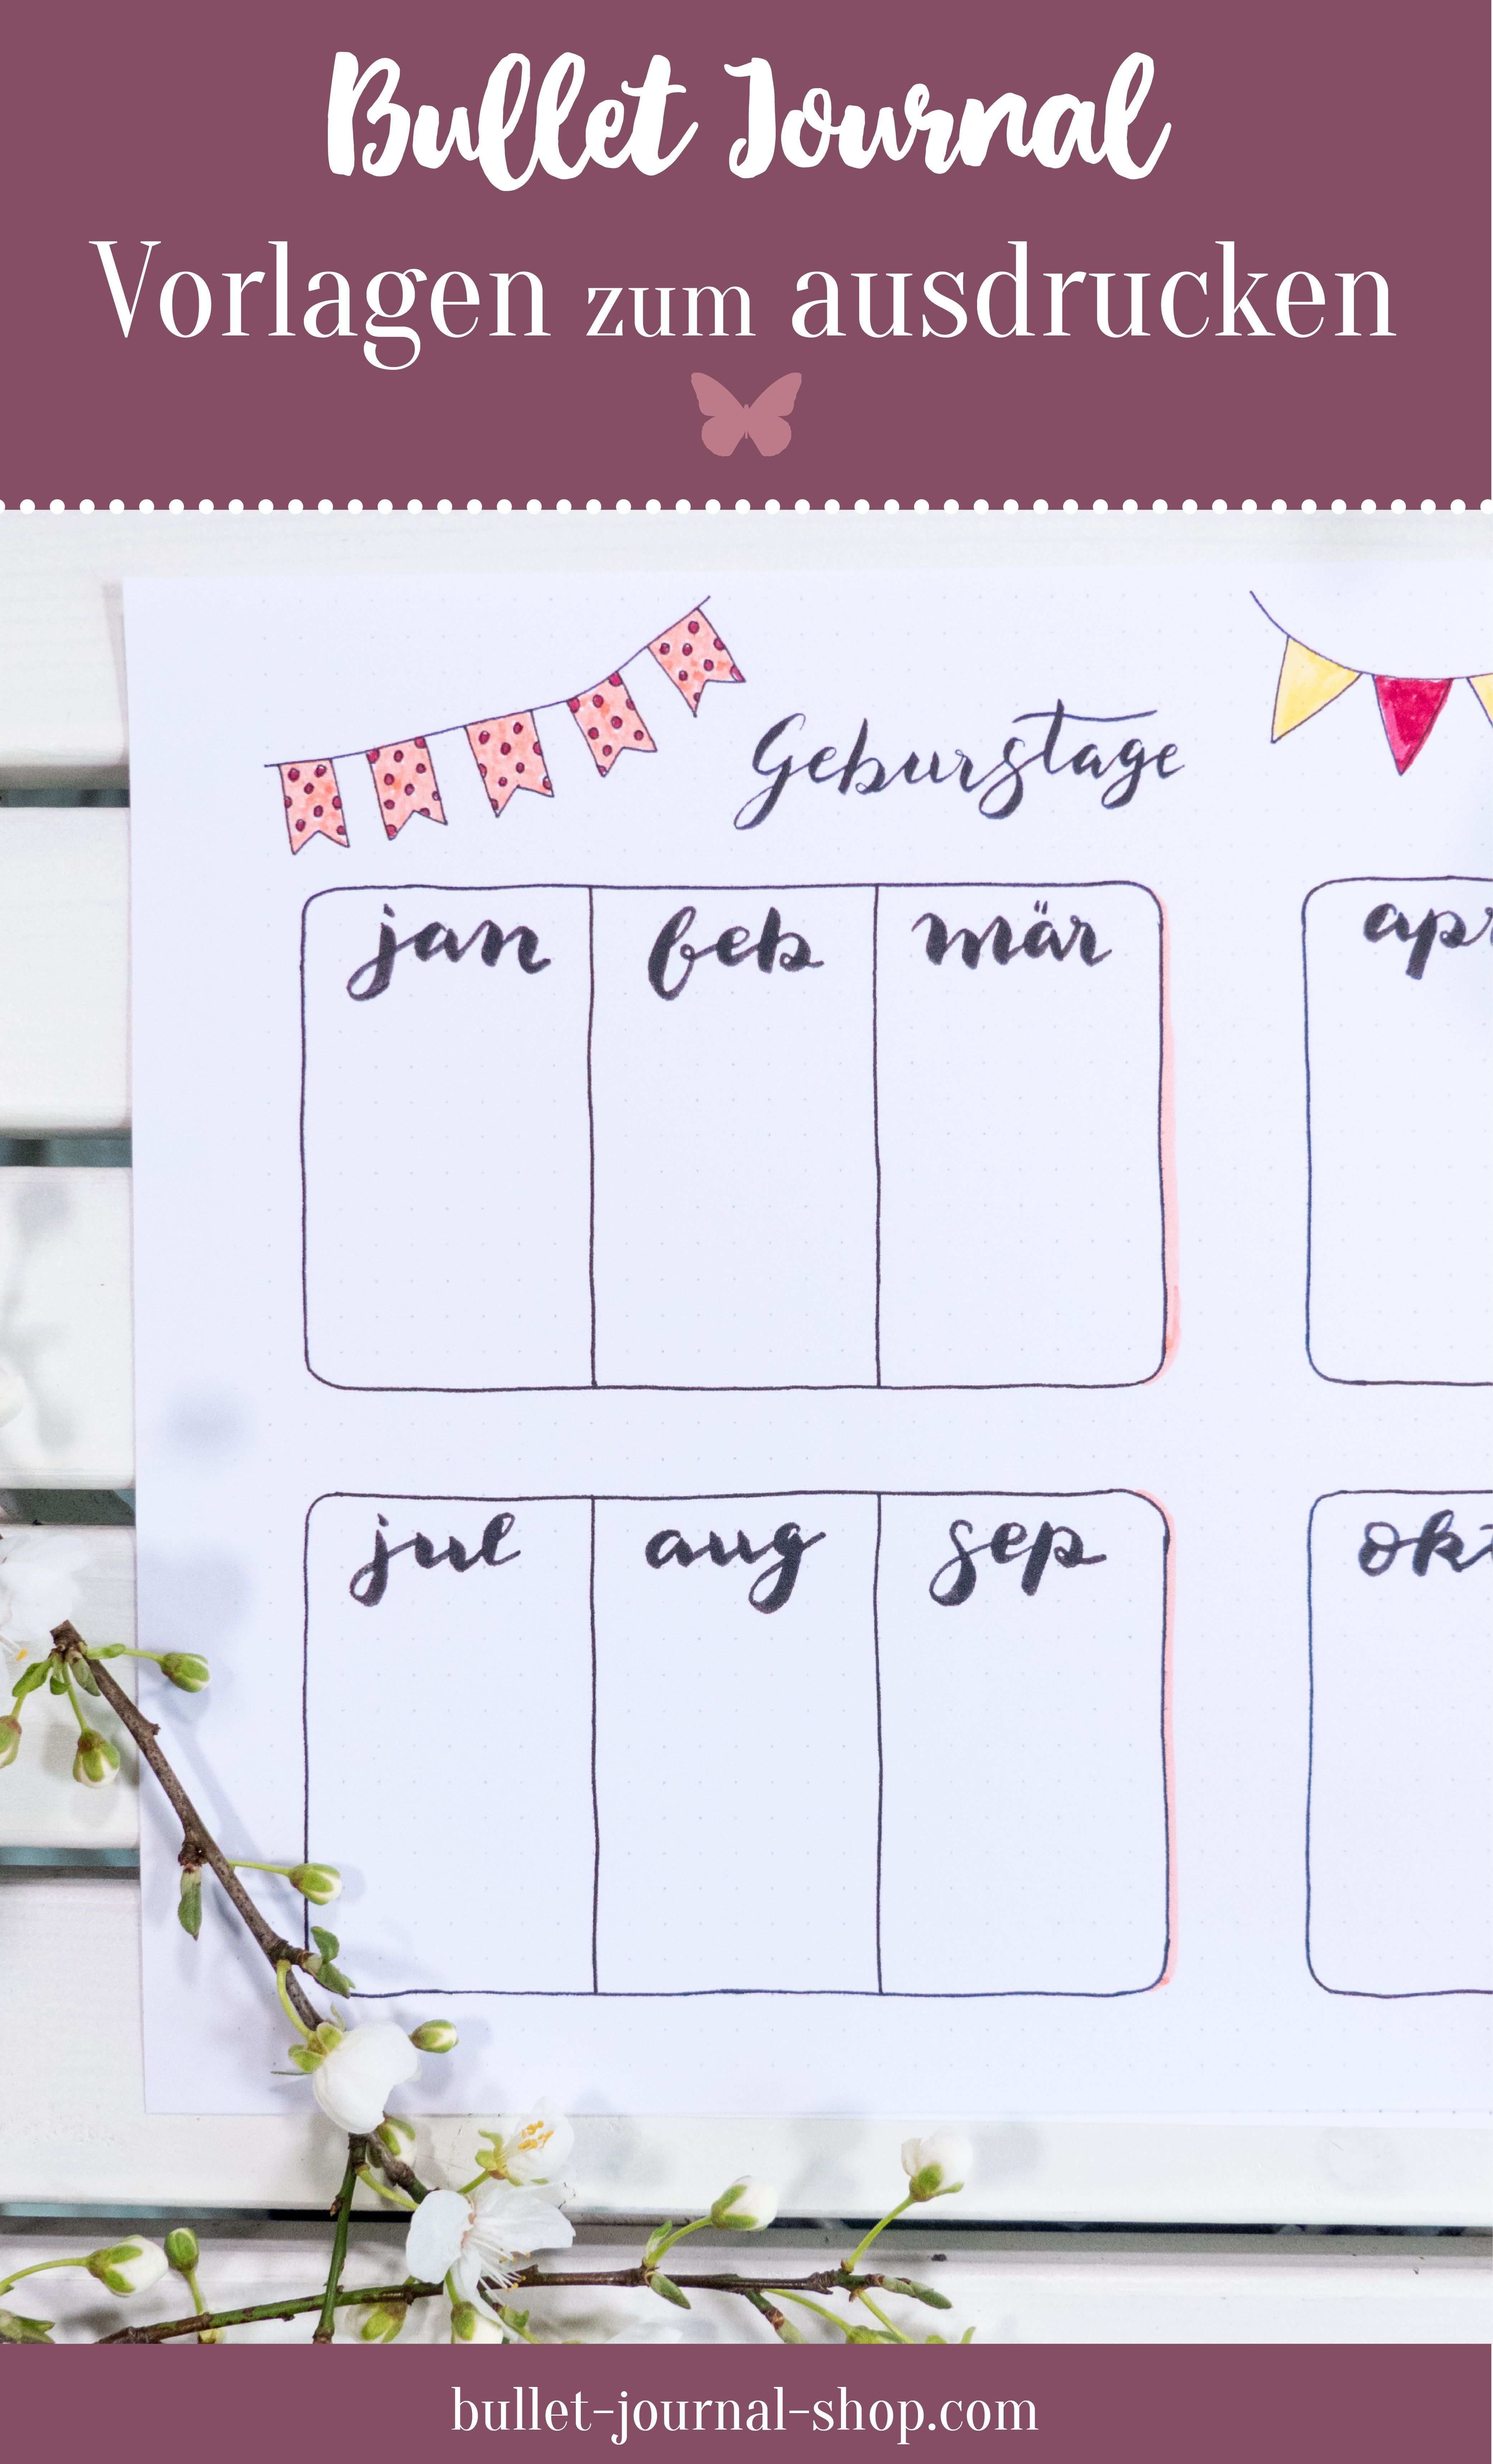 Bullet Journal
Vorlagen zum ausdrucken
Geburstage
jan feb mär apr
jul aug sep okt
bullet-journal-shop.com